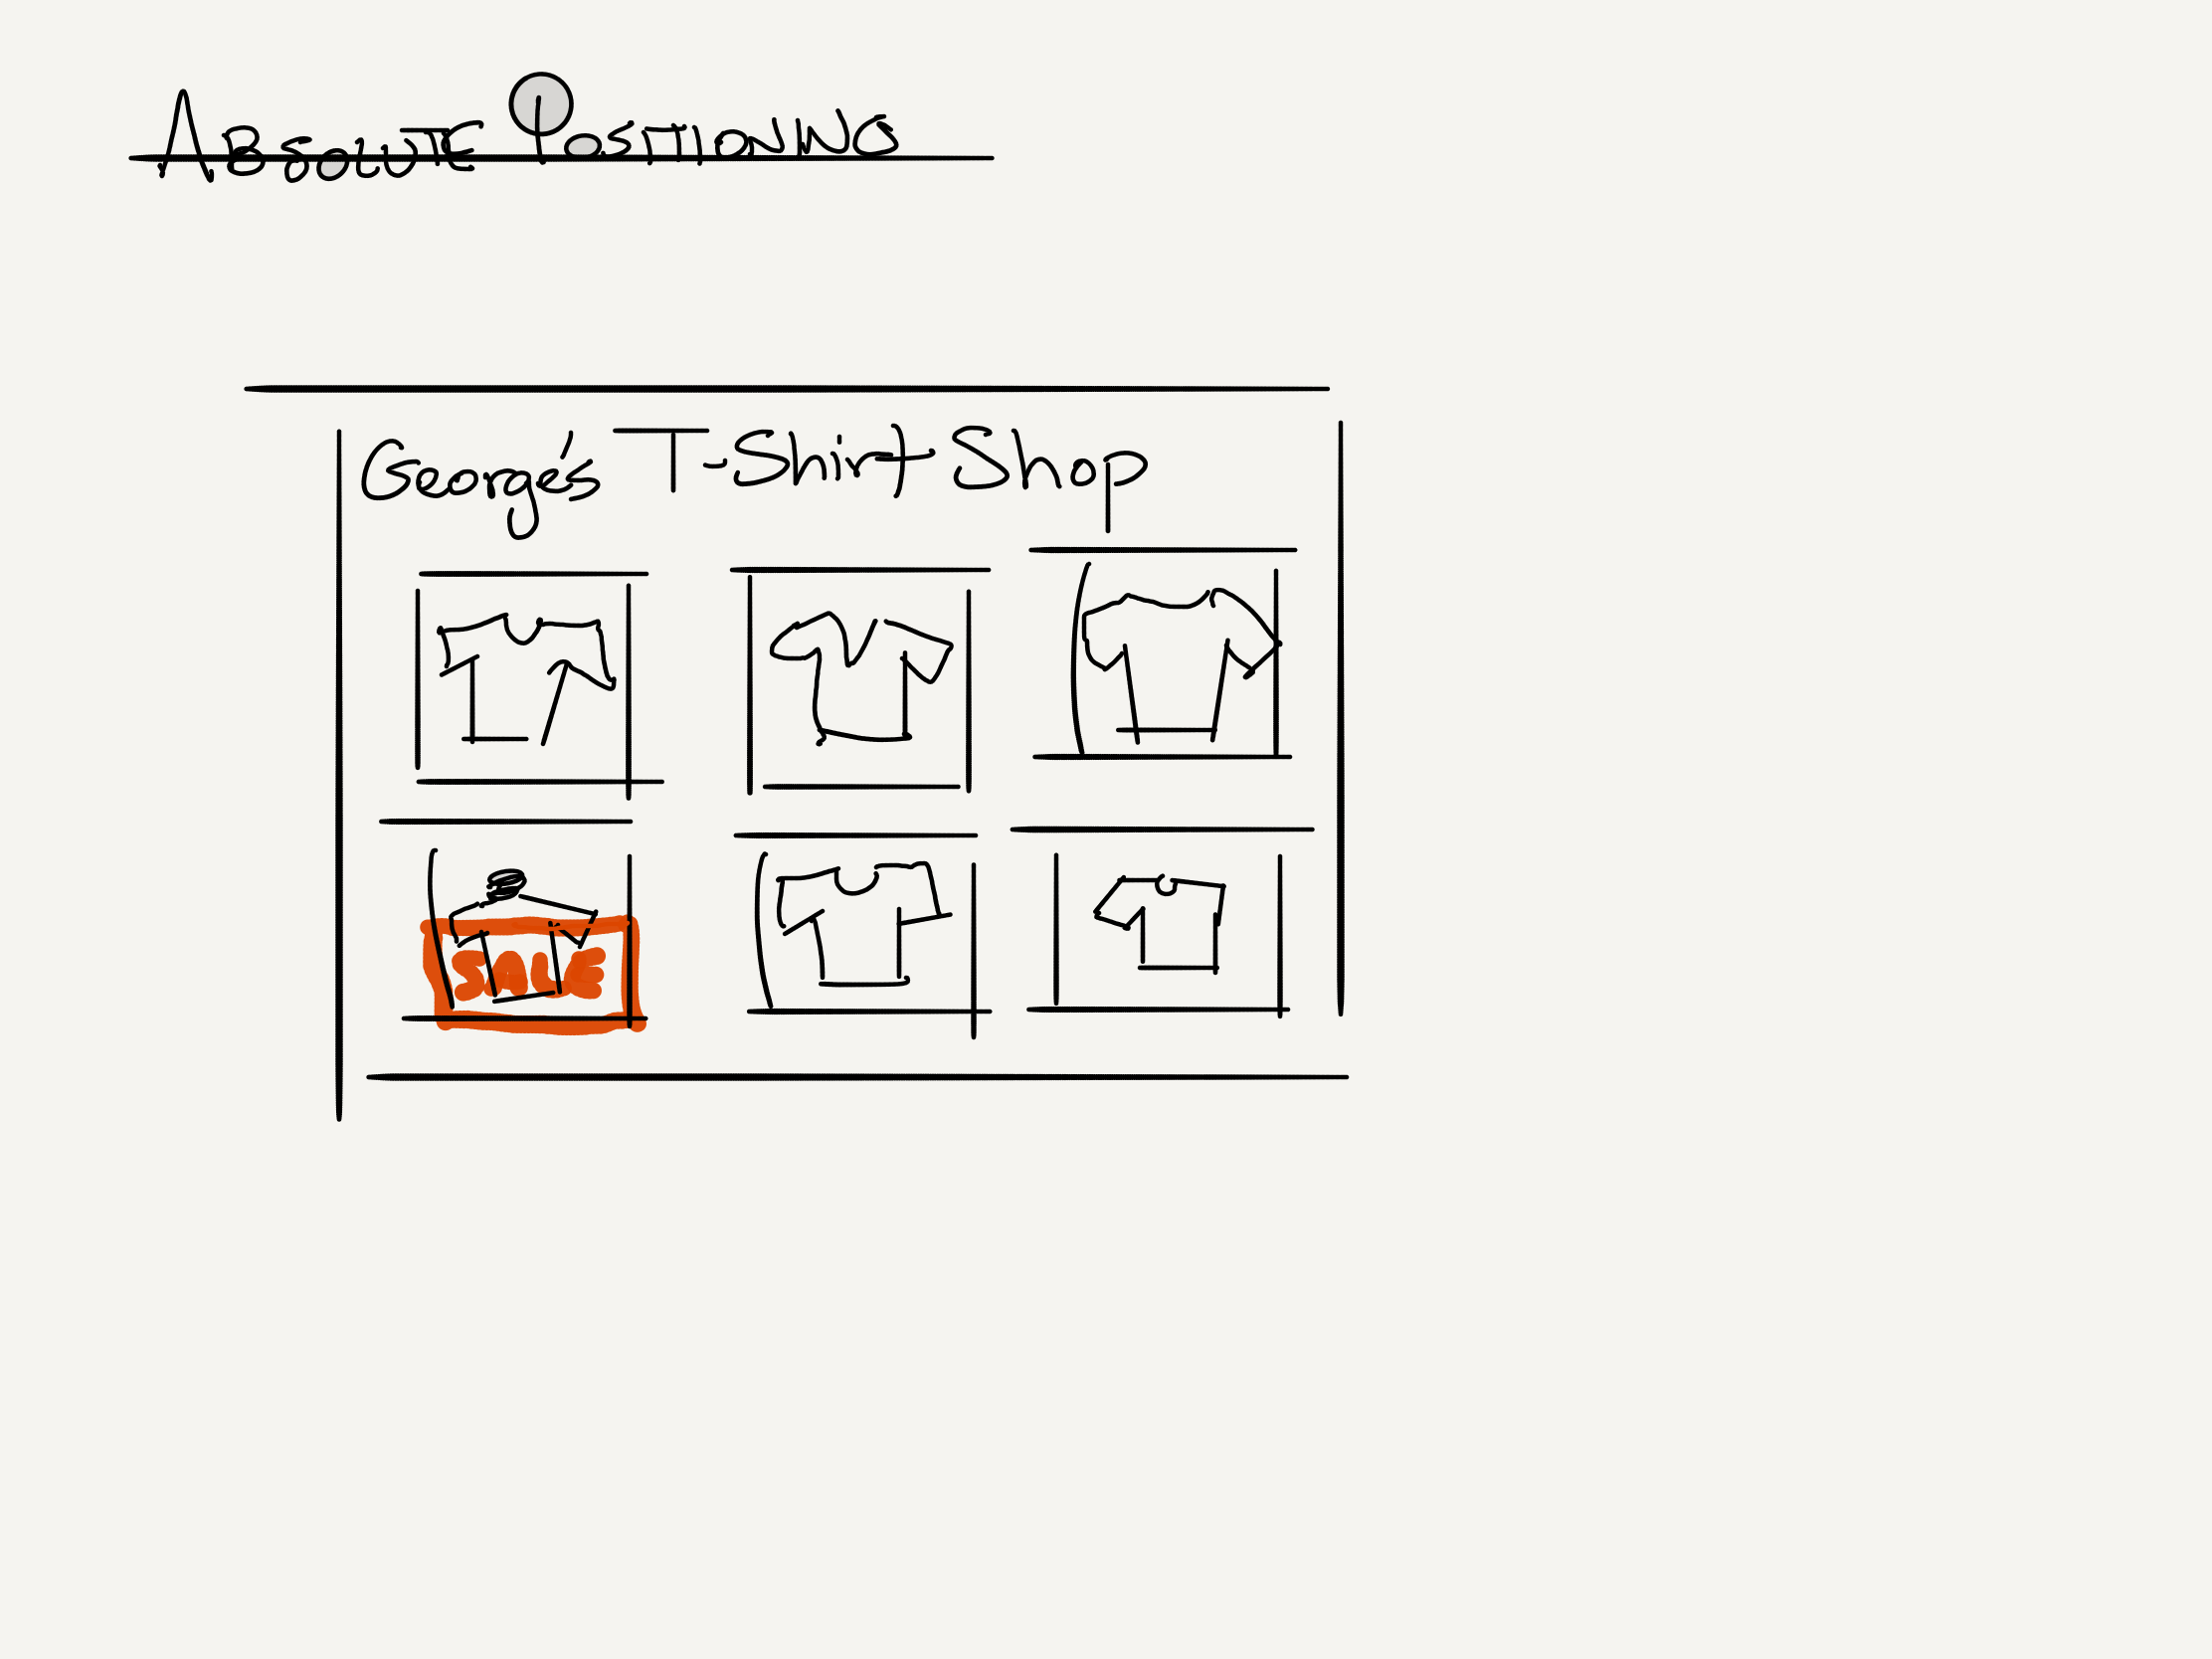 ABSOLUTE POSITIONING
George's T-Shirt Shop
SALE